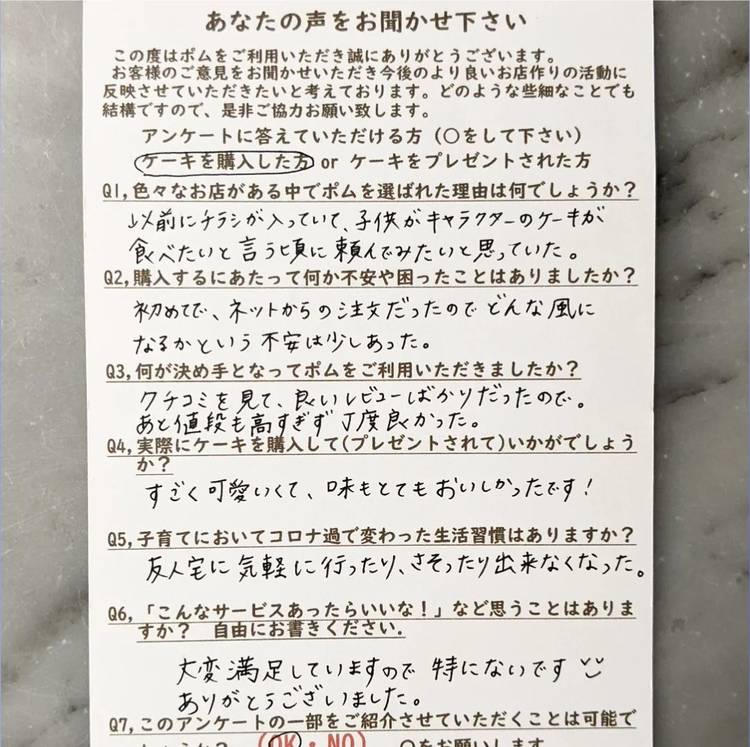 あなたの声をお聞かせ下さい
この度はポムをご利用いただき誠にありがとうございます。
お客様のご意見をお聞かせいただき今後のより良いお店作りの活動に
反映させていただきたいと考えております。どのような些細なことでも
結構ですので、是非ご協力お願い致します。
アンケートに答えていただける方（〇をして下さい）
ケーキを購入した方 or ケーキをプレゼントされた方
Q1,色々なお店がある中でポムを選ばれた理由は何でしょうか？
以前にチラシが入っていて、子供がキャラクターのケーキが
食べたいと言う頃に頼んでみたいと思っていた。
Q2,購入するにあたって何か不安や困ったことはありましたか？
初めてで、ネットからの注文だったのでどんな風に
なるかという不安は少しあった。
Q3,何が決め手となってポムをご利用いただきましたか？
クチコミを見て、良いレビューばかりだったので。
あと値段も高すぎず丁度良かった。
Q4,実際にケーキを購入して(プレゼントされて)いかがでしょう
か？
すごく可愛いくて、味もとてもおいしかったです！
Q5,子育てにおいてコロナ過で変わった生活習慣はありますか？
友人宅に気軽に行ったり、さそったり出来なくなった。
Q6,「こんなサービスあったらいいな！」など思うことはありま
すか？　自由にお書きください.
大変満足していますので特にないです
ありがとうございました。
Q7,このアンケートの一部をご紹介させていただくことは可能で
しょうか？ (OK・NO) 〇をお願いします